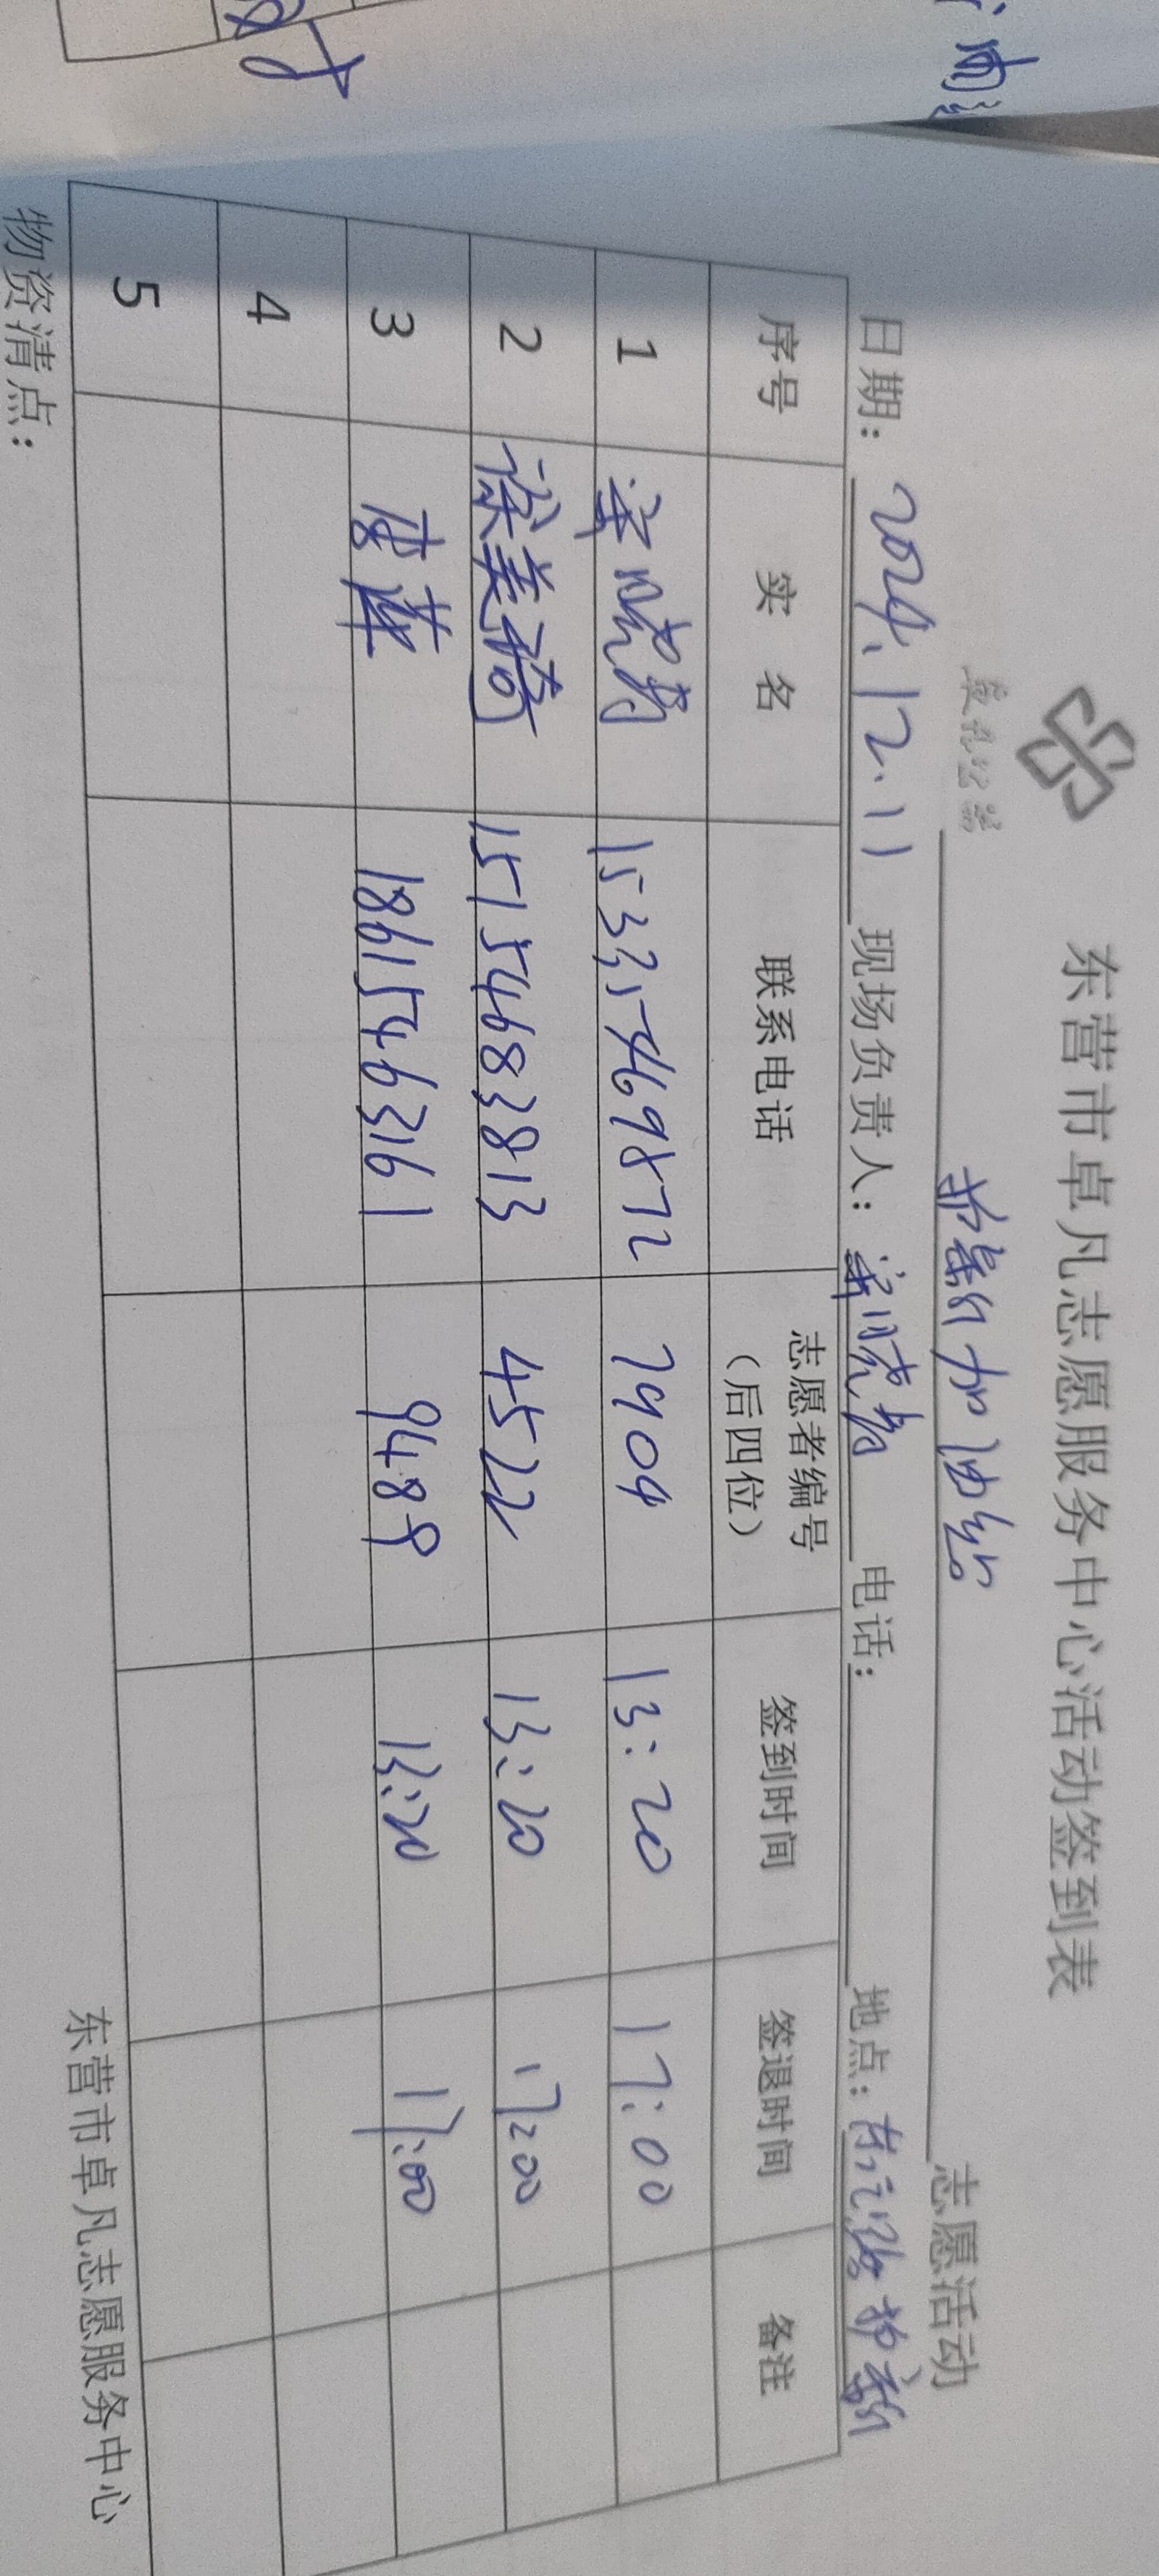 东营市卓凡志愿服务中心活动签到表
卓凡公益
加油站 志愿活动
日期：2024.12.11 现场负责人： 电话： 地点：
序号 实 名 联系电话 志愿者编号（后四位） 签到时间 签退时间 备注
1 15335469872 7909 13:20 17:00
2 徐美 15154683813 4522 13:20 17:00
3 18615463161 9489 13:20 17:00
4
5
物资清点：
东营市卓凡志愿服务中心